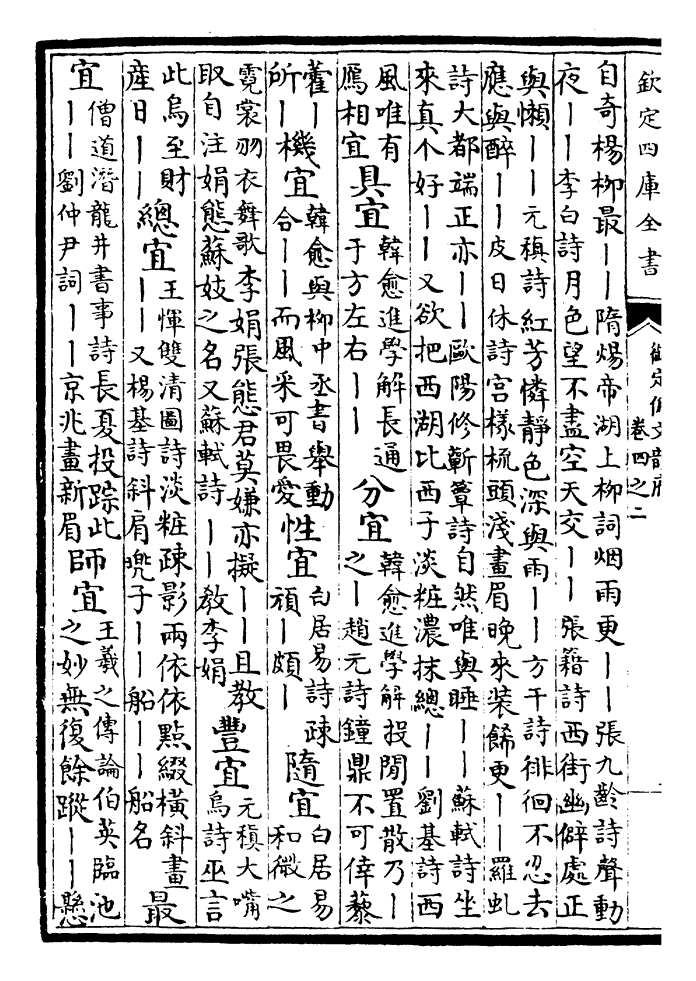 欽定四庫全書
御定佩文韻府
卷四之二
自奇楊柳最丨丨隋煬帝湖上柳詞烟雨更丨丨張九齡詩聲動
夜丨丨李白詩月色望不盡空天交丨丨張籍詩西街幽僻處正
與懶丨丨元稹詩紅芳憐靜色深與雨丨丨方干詩徘徊不忍去
應與醉丨丨皮日休詩宫樣梳頭淺畫眉晚來裝飾更丨丨羅虬
詩大都端正亦丨丨歐陽修蘄簟詩自然唯與睡丨丨蘇軾詩坐
來真个好丨丨又欲把西湖比西子淡粧濃抹總丨丨劉基詩西
風唯有鴈相宜具宜韓愈進學解長通于方左右丨丨分宜韓愈進學解投閒置散乃丨之丨趙元詩鐘鼎不可倖藜
藿丨所丨機宜韓愈與柳中丞書舉動合丨丨而風采可畏愛性宜白居易詩疎頑丨頗丨隨宜白居易和微之
霓裳羽衣舞歌李娟張態君莫嫌亦擬丨丨且教取自注娟態蘇妓之名又蘇軾詩丨丨教李娟豐宜元稹大嘴烏詩巫言
此烏至財産日丨丨總宜王惲雙清圖詩淡粧疎影兩依依點綴橫斜畫丨丨又楊基詩斜肩兜子丨丨船丨丨船名最
宜僧道潛龍井書事詩長夏投踪此丨丨劉仲尹詞丨丨京兆畫新眉師宜王羲之傳論伯英臨池之妙無復餘蹤丨丨懸